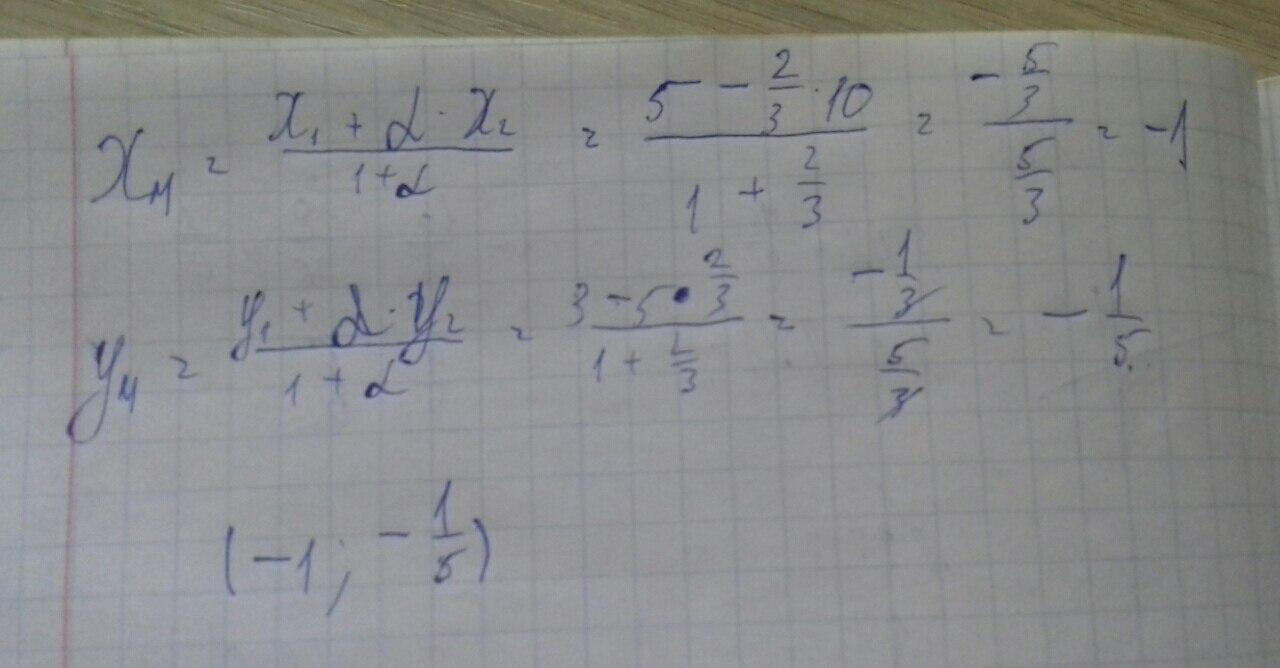 x_M = (x_1 + α · x_2)/(1 + α) = (5 - 2/3 · 10)/(1 + 2/3) = (-5/3)/(5/3) = -1
y_M = (y_1 + α · y_2)/(1 + α) = (3 - 5 · 2/3)/(1 + 2/3) = (-1/3)/(5/3) = -1/5
(-1; -1/5)